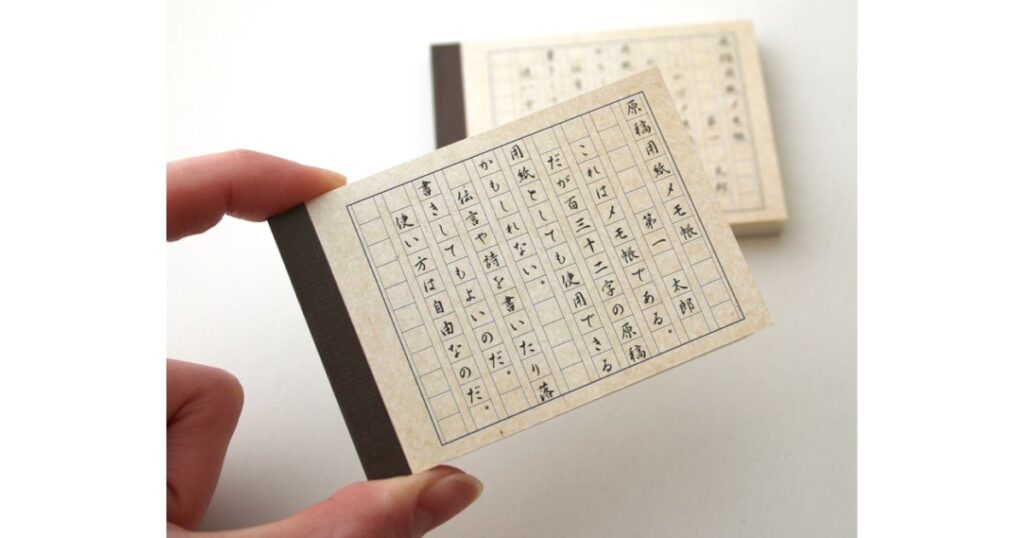 原稿用紙メモ帳
第一 太郎
これはメモ帳である。
だが百三十二字の原稿
用紙としても使用できる
かもしれない。
伝言や詩を書いたり落
書きしてもよいのだ。
使い方は自由なのだ。